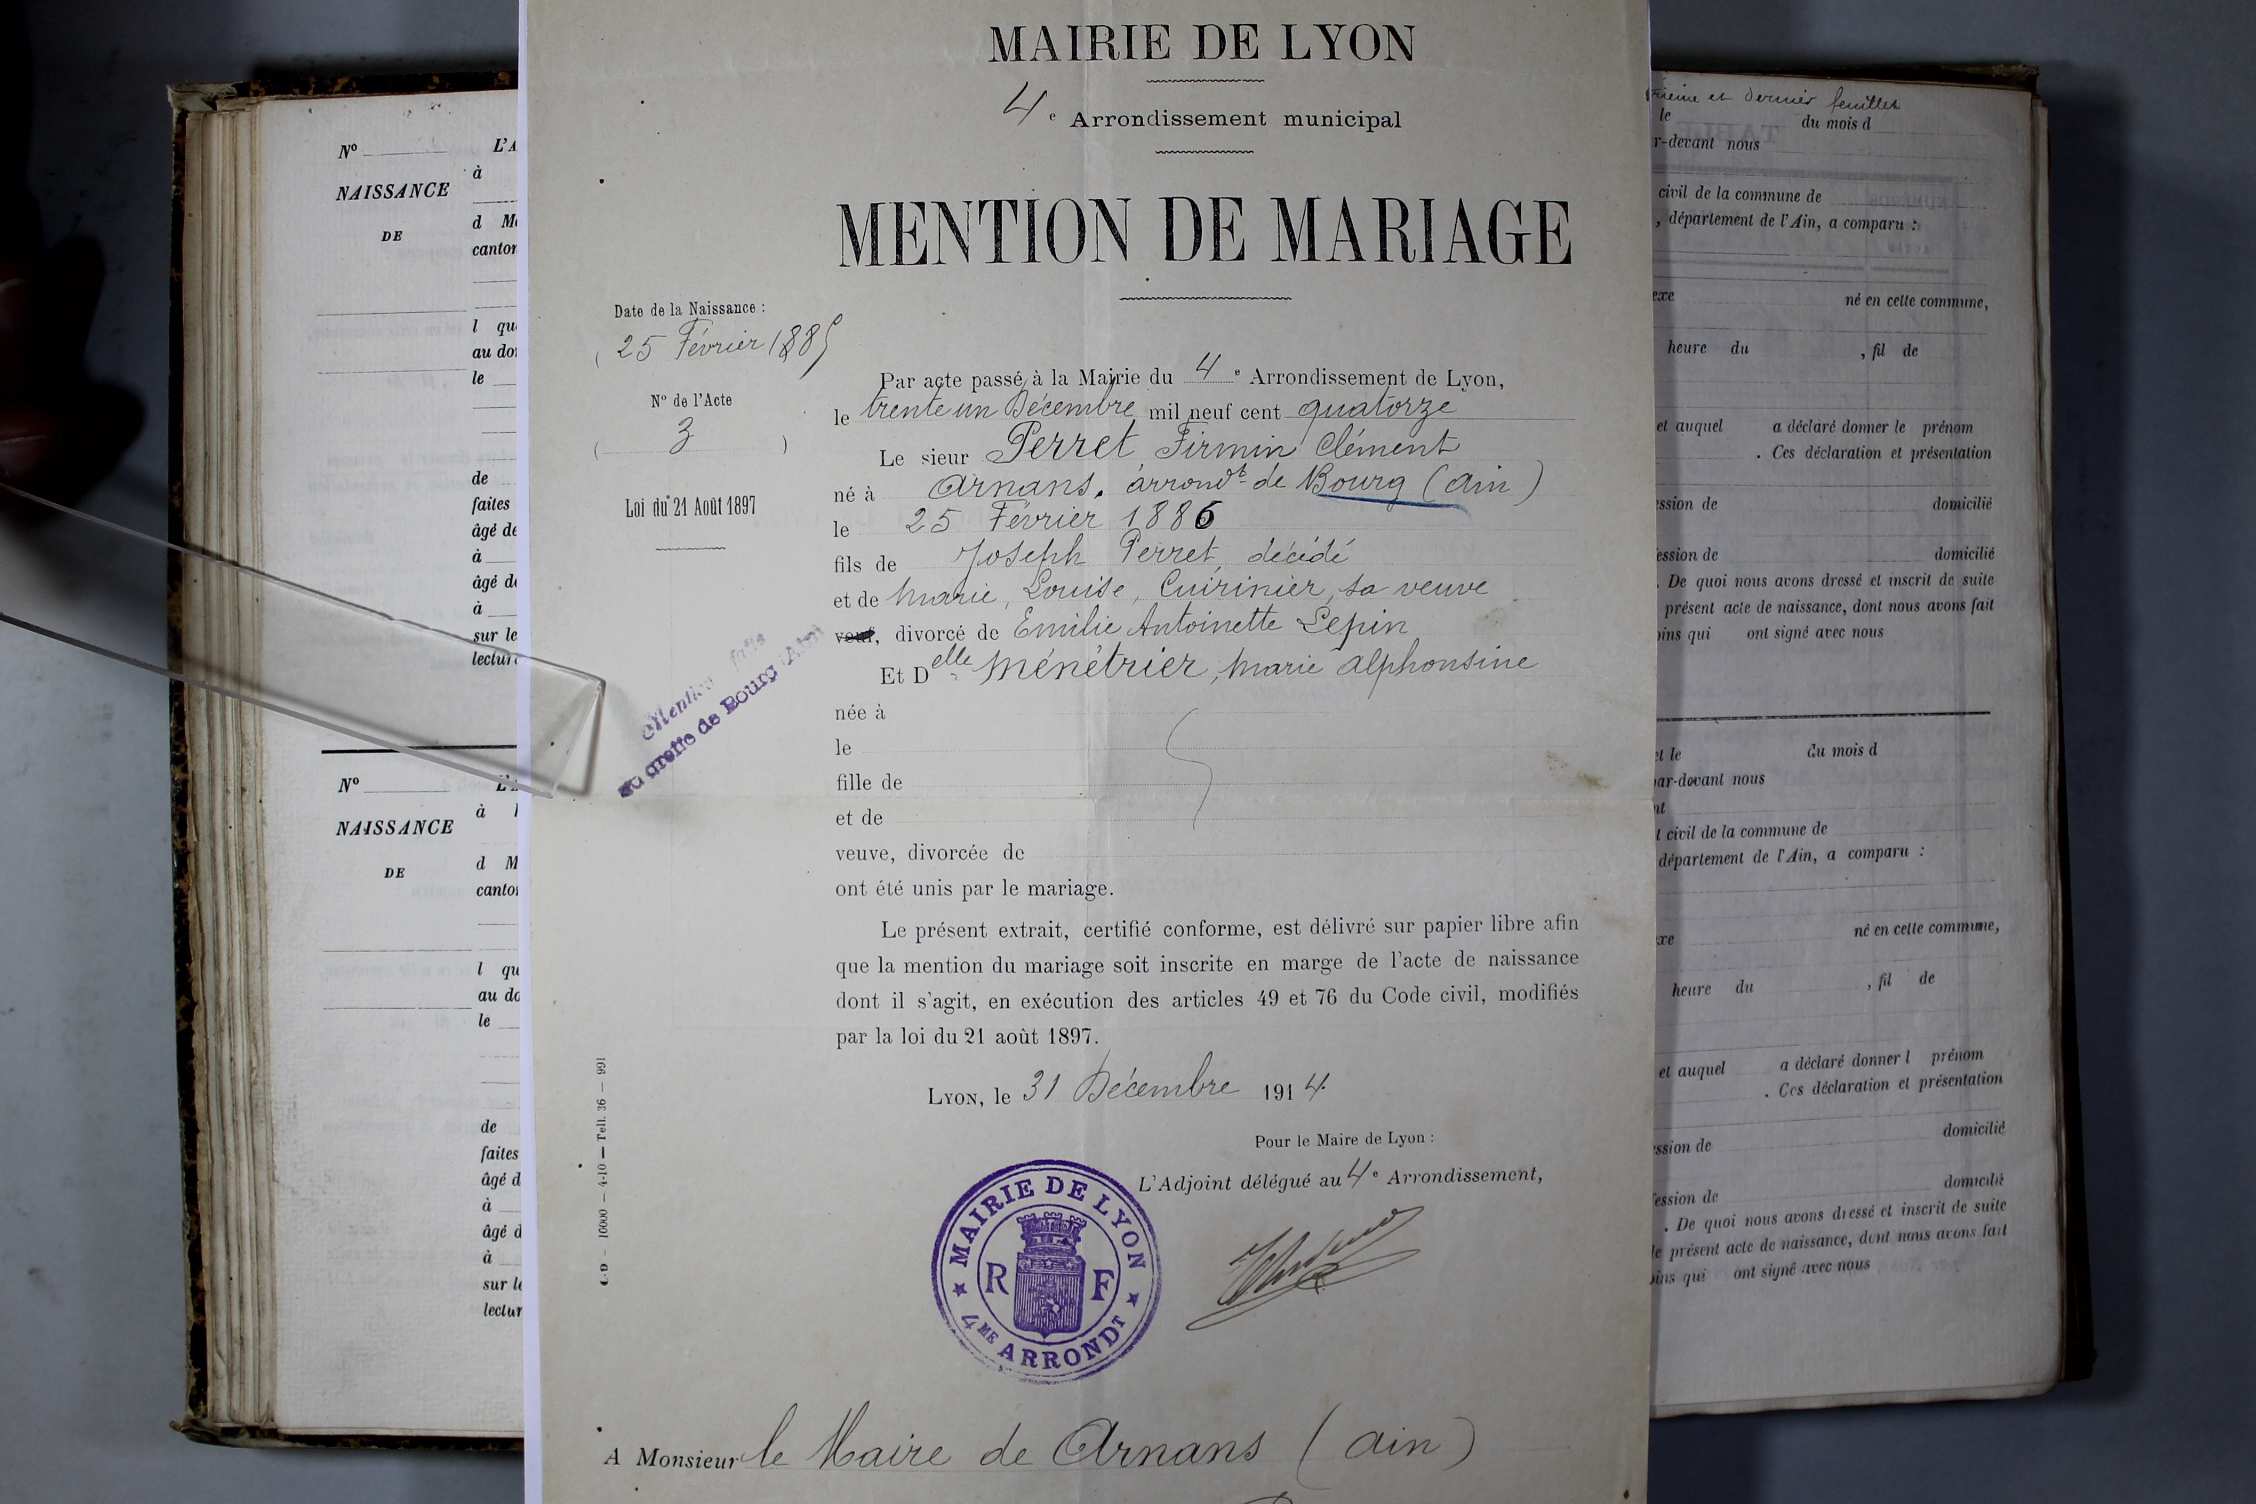 MAIRIE DE LYON
4e Arrondissement municipal
MENTION DE MARIAGE
Date de la Naissance :
25 Février 1885
No de l'Acte
( 3 )
Loi du 21 Août 1897
Mention faite
au greffe de Bourg (Ain)
Par acte passé à la Mairie du 4e Arrondissement de Lyon,
le trente un Décembre mil neuf cent quatorze
Le sieur Perret Firmin Clément
né à Arnans, arrondt de Bourg (Ain)
le 25 Février 1886
fils de Joseph Perret, décédé
et de Marie, Louise, Cuirinier, sa veuve
veuf, divorcé de Emilie Antoinette Lepin
Et Delle Ménétrier, Marie Alphonsine
née à
le
fille de
et de
veuve, divorcée de
ont été unis par le mariage.
Le présent extrait, certifié conforme, est délivré sur papier libre afin
que la mention du mariage soit inscrite en marge de l'acte de naissance
dont il s'agit, en exécution des articles 49 et 76 du Code civil, modifiés
par la loi du 21 août 1897.
LYON, le 31 Décembre 1914
Pour le Maire de Lyon :
L'Adjoint délégué au 4e Arrondissement,
MAIRIE DE LYON
R F
4ME ARRONDT
A Monsieur le Maire de Arnans (Ain)
10000 — 4-10 — Tell. 36 — 991
No
L'A
NAISSANCE
à
DE
d M
canton
l qu
au do
le
de
faites
âgé de
à
âgé de
à
sur le
lectur
No
NAISSANCE
à
DE
d M
canto
l qu
au do
le
de
faites
âgé d
à
âgé d
à
sur le
lectur
et dernier feuillet
le du mois d
r-devant nous
civil de la commune de
, département de l'Ain, a comparu :
exe né en cette commune,
heure du , fil de
et auquel a déclaré donner le prénom
. Ces déclaration et présentation
ession de domicilié
ession de domicilié
. De quoi nous avons dressé et inscrit de suite
présent acte de naissance, dont nous avons fait
oins qui ont signé avec nous
et le du mois d
ar-devant nous
nt
t civil de la commune de
département de l'Ain, a comparu :
exe né en cette commune,
heure du , fil de
et auquel a déclaré donner l prénom
. Ces déclaration et présentation
ession de domicilié
ession de domicilié
. De quoi nous avons dressé et inscrit de suite
le présent acte de naissance, dont nous avons fait
oins qui ont signé avec nous